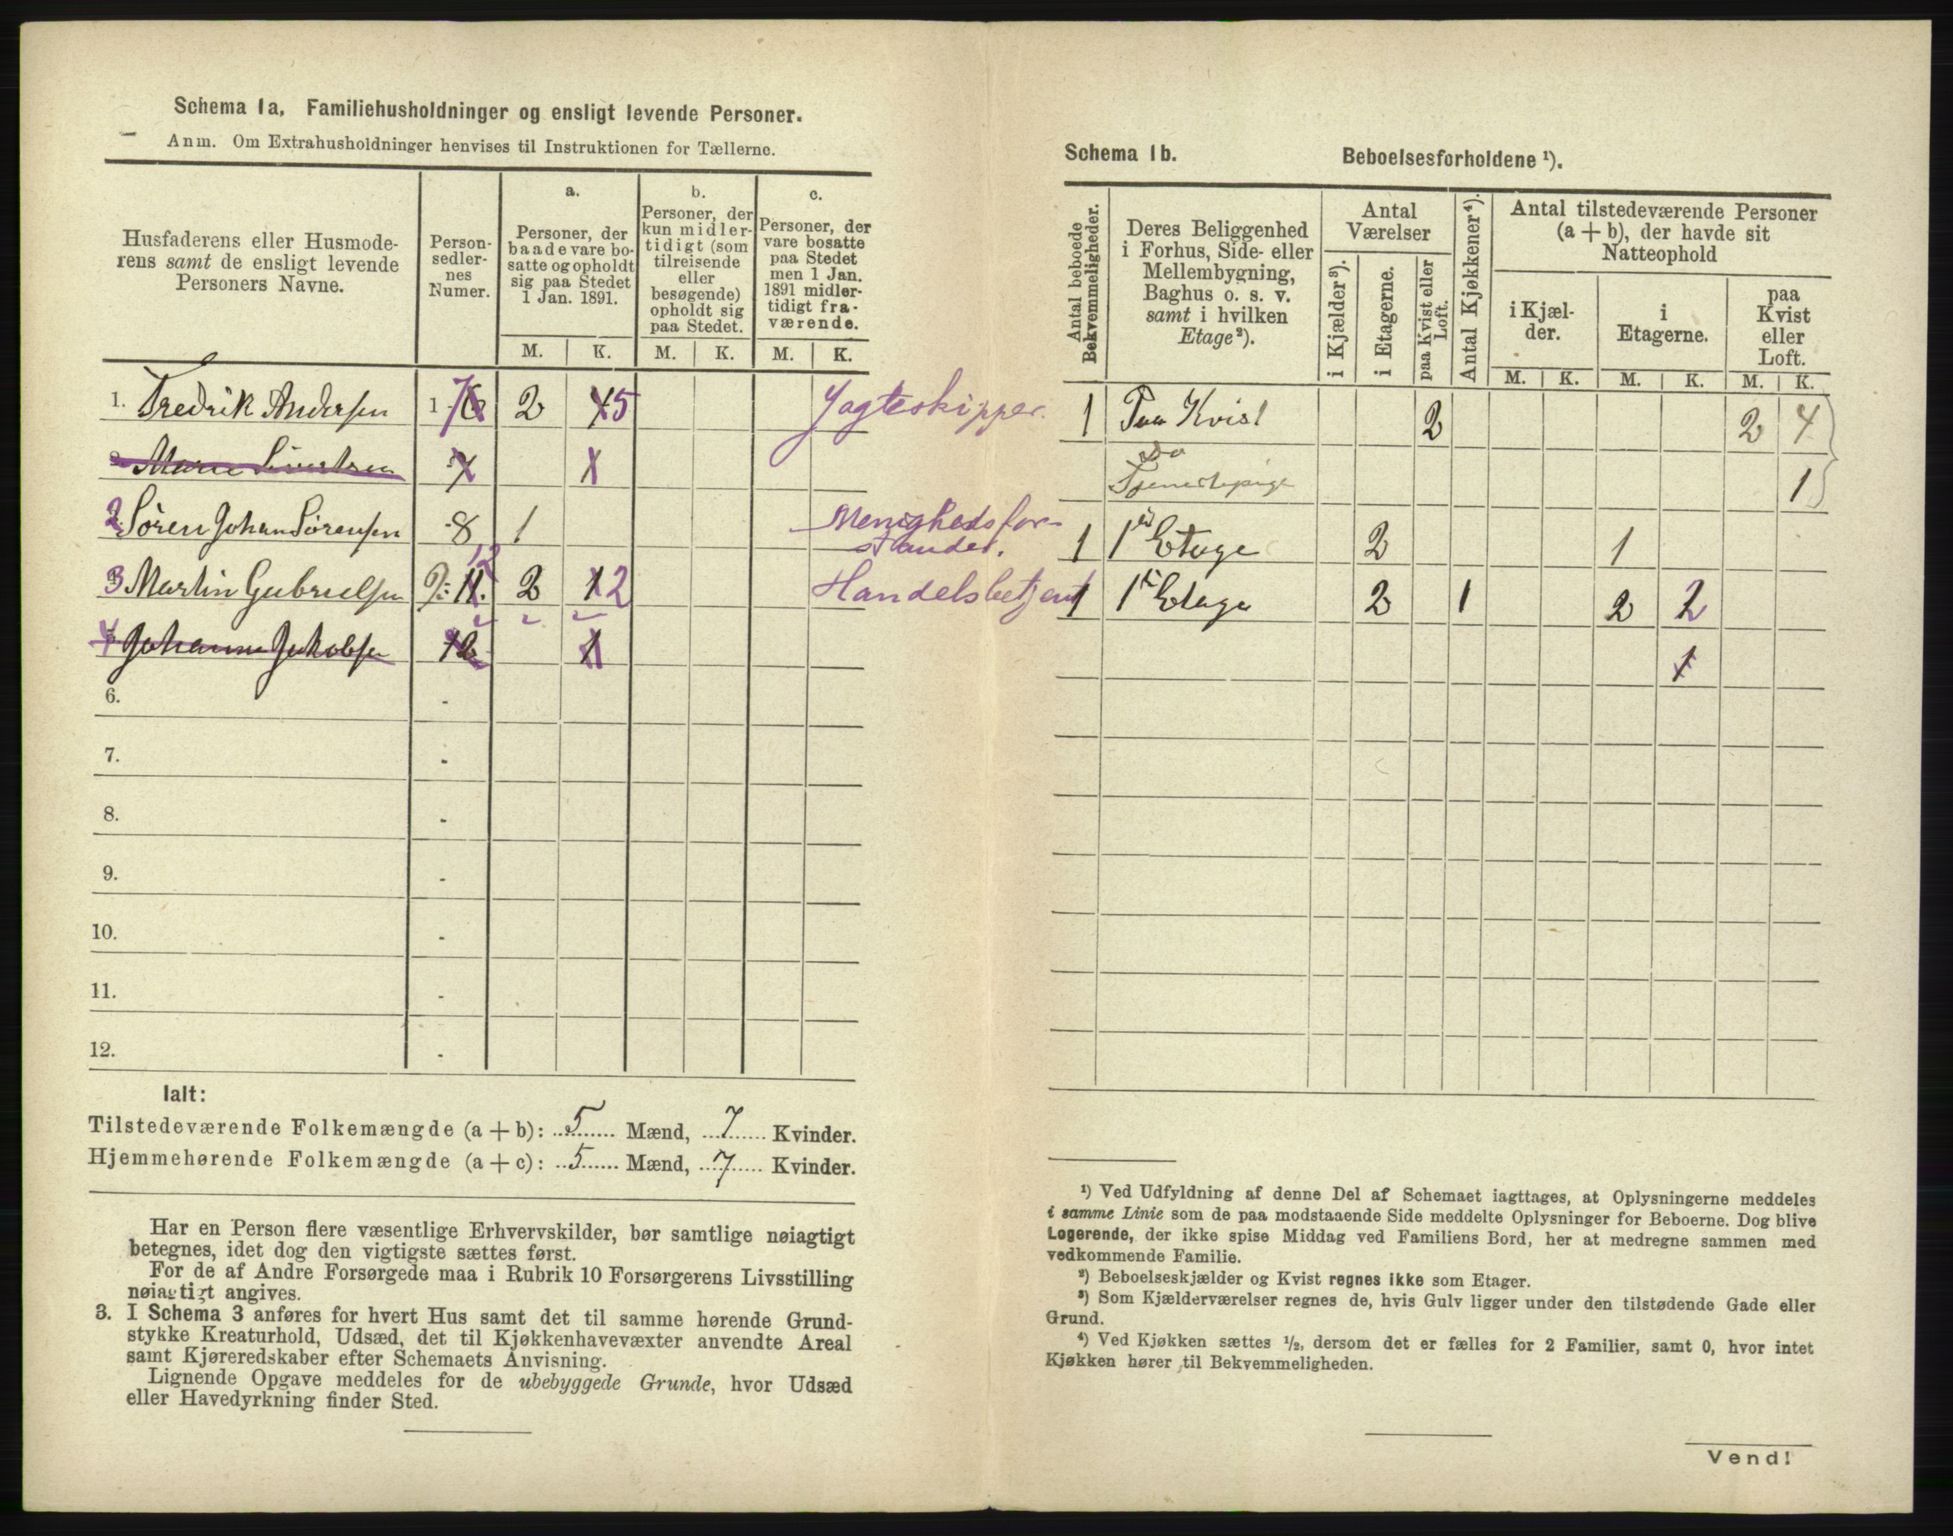 Schema 1a. Familiehusholdninger og ensligt levende Personer.
Anm. Om Extrahusholdninger henvises til Instruktionen for Tællerne.
Husfaderens eller Husmode-
rens samt de ensligt levende
Personers Navne.
Person-
sedler-
nes
Numer.
a.
Personer, der
baade vare bo-
satte og opholdt
sig paa Stedet
1 Jan. 1891.
b.
Personer, der
kun midler-
tidigt (som
tilreisende
eller
besøgende)
opholdt sig
paa Stedet.
c.
Personer, der
vare bosatte
paa Stedet
men 1 Jan.
1891 midler-
tidigt fra-
værende.
M. K. M. K. M. K.
1. Fredrik Andersen 1 7 2 5 Jagteskipper.
Marie Sivertsen
2. Søren Johan Sørensen -8 1 Menighedsfor-
stander.
3 Martin Gabrielsen 9-12 2 2 Handelsbetjent
4 Johanne Jakobsen 12 1
6. -
7. -
8. -
9. -
10. -
11. -
12. -
Ialt:
Tilstedeværende Folkemængde (a + b): 5 Mænd, 7 Kvinder.
Hjemmehørende Folkemængde (a + c): 5 Mænd, 7 Kvinder.
Har en Person flere væsentlige Erhvervskilder, bør samtlige nøiagtigt
betegnes, idet dog den vigtigste sættes først.
For de af Andre Forsørgede maa i Rubrik 10 Forsørgerens Livsstilling
nøiagtigt angives.
3. I Schema 3 anføres for hvert Hus samt det til samme hørende Grund-
stykke Kreaturhold, Udsæd, det til Kjøkkenhavevæxter anvendte Areal
samt Kjøreredskaber efter Schemaets Anvisning.
Lignende Opgave meddeles for de ubebyggede Grunde, hvor Udsæd
eller Havedyrkning finder Sted.
Schema 1b. Beboelsesforholdene ¹).
Antal beboede
Bekvemmeligheder.
Deres Beliggenhed
i Forhus, Side- eller
Mellembygning,
Baghus o. s. v.
samt i hvilken
Etage²).
Antal
Værelser
i Kjælder³).
i Etagerne.
paa Kvist eller
Loft.
Antal Kjøkkener⁴).
Antal tilstedeværende Personer
(a + b), der havde sit
Natteophold
i Kjæl-
der.
i
Etagerne.
paa
Kvist
eller
Loft.
M. K. M. K. M. K.
1 Paa Kvist 2 2 4
Do
Tjenestepige 1
1 1ste Etage 2 1
1 1ste Etage 2 1 2 2
1
¹) Ved Udfyldning af denne Del af Schemaet iagttages, at Oplysningerne meddeles
i samme Linie som de paa modstaaende Side meddelte Oplysninger for Beboerne. Dog blive
Logerende, der ikke spise Middag ved Familiens Bord, her at medregne sammen med
vedkommende Familie.
²) Beboelseskjælder og Kvist regnes ikke som Etager.
³) Som Kjælderværelser regnes de, hvis Gulv ligger under den tilstødende Gade eller
Grund.
⁴) Ved Kjøkken sættes ½, dersom det er fælles for 2 Familier, samt 0, hvor intet
Kjøkken hører til Bekvemmeligheden.
Vend!